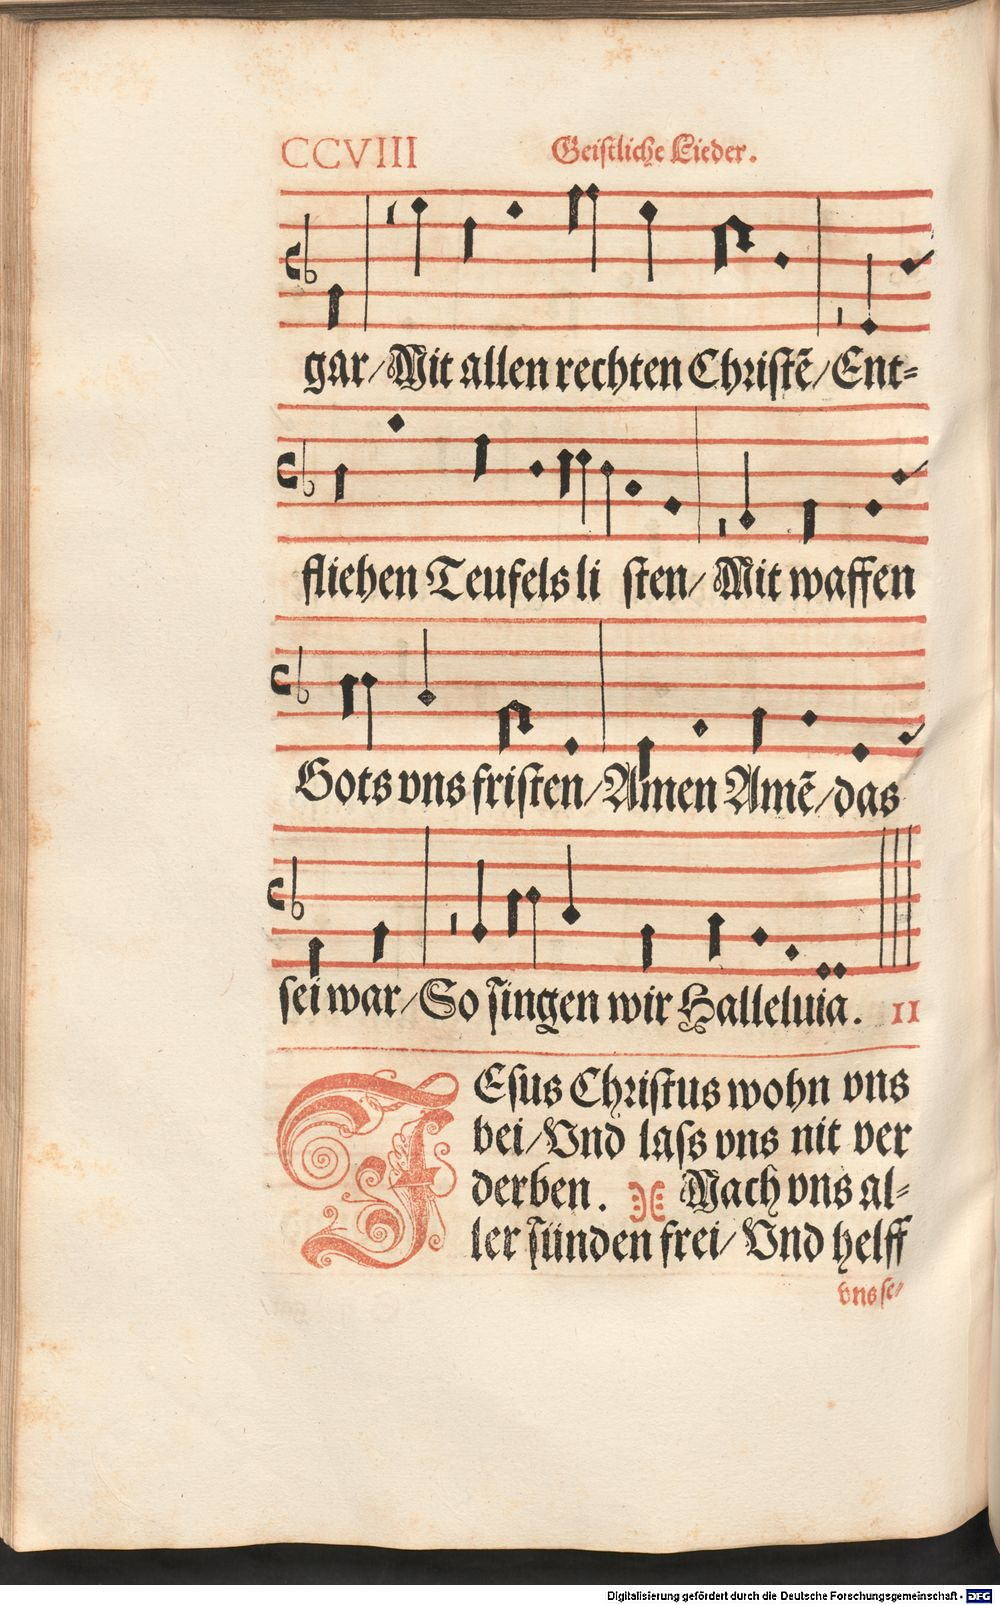 CCVIII Geistliche Lieder.
gar/ Mit allen rechten Christē/ Ent=
fliehen Teufels li sten/ Mit waffen
Gots vns fristen/ Amen Amē/ das
sei war/ So singen wir Halleluia. II
JEsus Christus wohn vns
bei/ Vnd lass vns nit ver
derben. Mach vns al=
ler sünden frei/ Vnd helff
vns se/
Digitalisierung gefördert durch die Deutsche Forschungsgemeinschaft - DFG